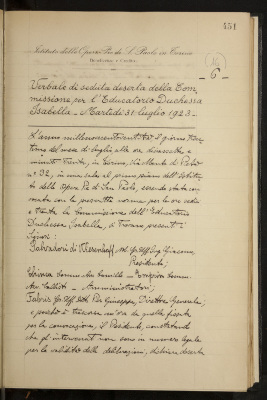 451
Istituto delle Opere Pie di S. Paolo in Torino
Beneficenza e Credito
- 6 -
Verbale di seduta deserta della Com_
missione per l'Educatorio Duchessa
Isabella - Martedì 31 luglio 1923 -
L'anno millenovecentoventitre il giorno tren_
tuno del mese di luglio alle ore diciassette e
minuti trenta, in Torino, Via Monte di Pietà
n° 32, in una sala al primo piano dell'Istituto
delle Opere Pie di San Paolo, essendo stata con_
vocata con le prescritte norme per le ore sedici
e trenta la Commissione dell'Educatorio
Duchessa Isabella, si trovano presenti i
Signori:
Salvadori di Wiesenhoff, Giacomo,
Presidente;
Comm. Avv. Camillo - Comm.
Avv. - Amministratori;
Fabris Pier Giuseppe, Direttore Generale;
e poiché è trascorsa un'ora da quella fissata
per la convocazione, il Presidente, constatando
che gli intervenuti non sono in numero legale
per la validità delle deliberazioni, dichiara deserta